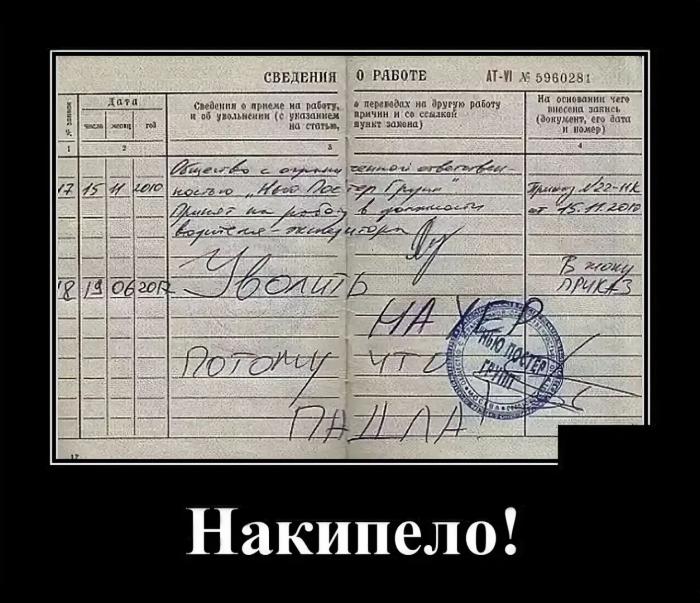 СВЕДЕНИЯ О РАБОТЕ AT-VI № 5960281
№ записи
Дата
число месяц год
Сведения о приеме на работу, о переводах на другую работу
и об увольнении (с указанием причин и со ссылкой
на статью, пункт закона)
На основании чего
внесена запись
(документ, его дата
и номер)
1 2 3 4
Общество с ограниченной ответствен-
17 15 11 2010 ностью „Нью Постер Групп" Приказ №22-НК
Принят на работу в должности от 15.11.2010
водителя-экспедитора
18 19 06 2012 Уволить В жопу
ПРИКАЗ
НА ХЕР
ПОТОМУ ЧТО
ПАДЛА!
НЬЮ ПОСТЕР
ГРУПП
МОСКВА
17
Накипело!